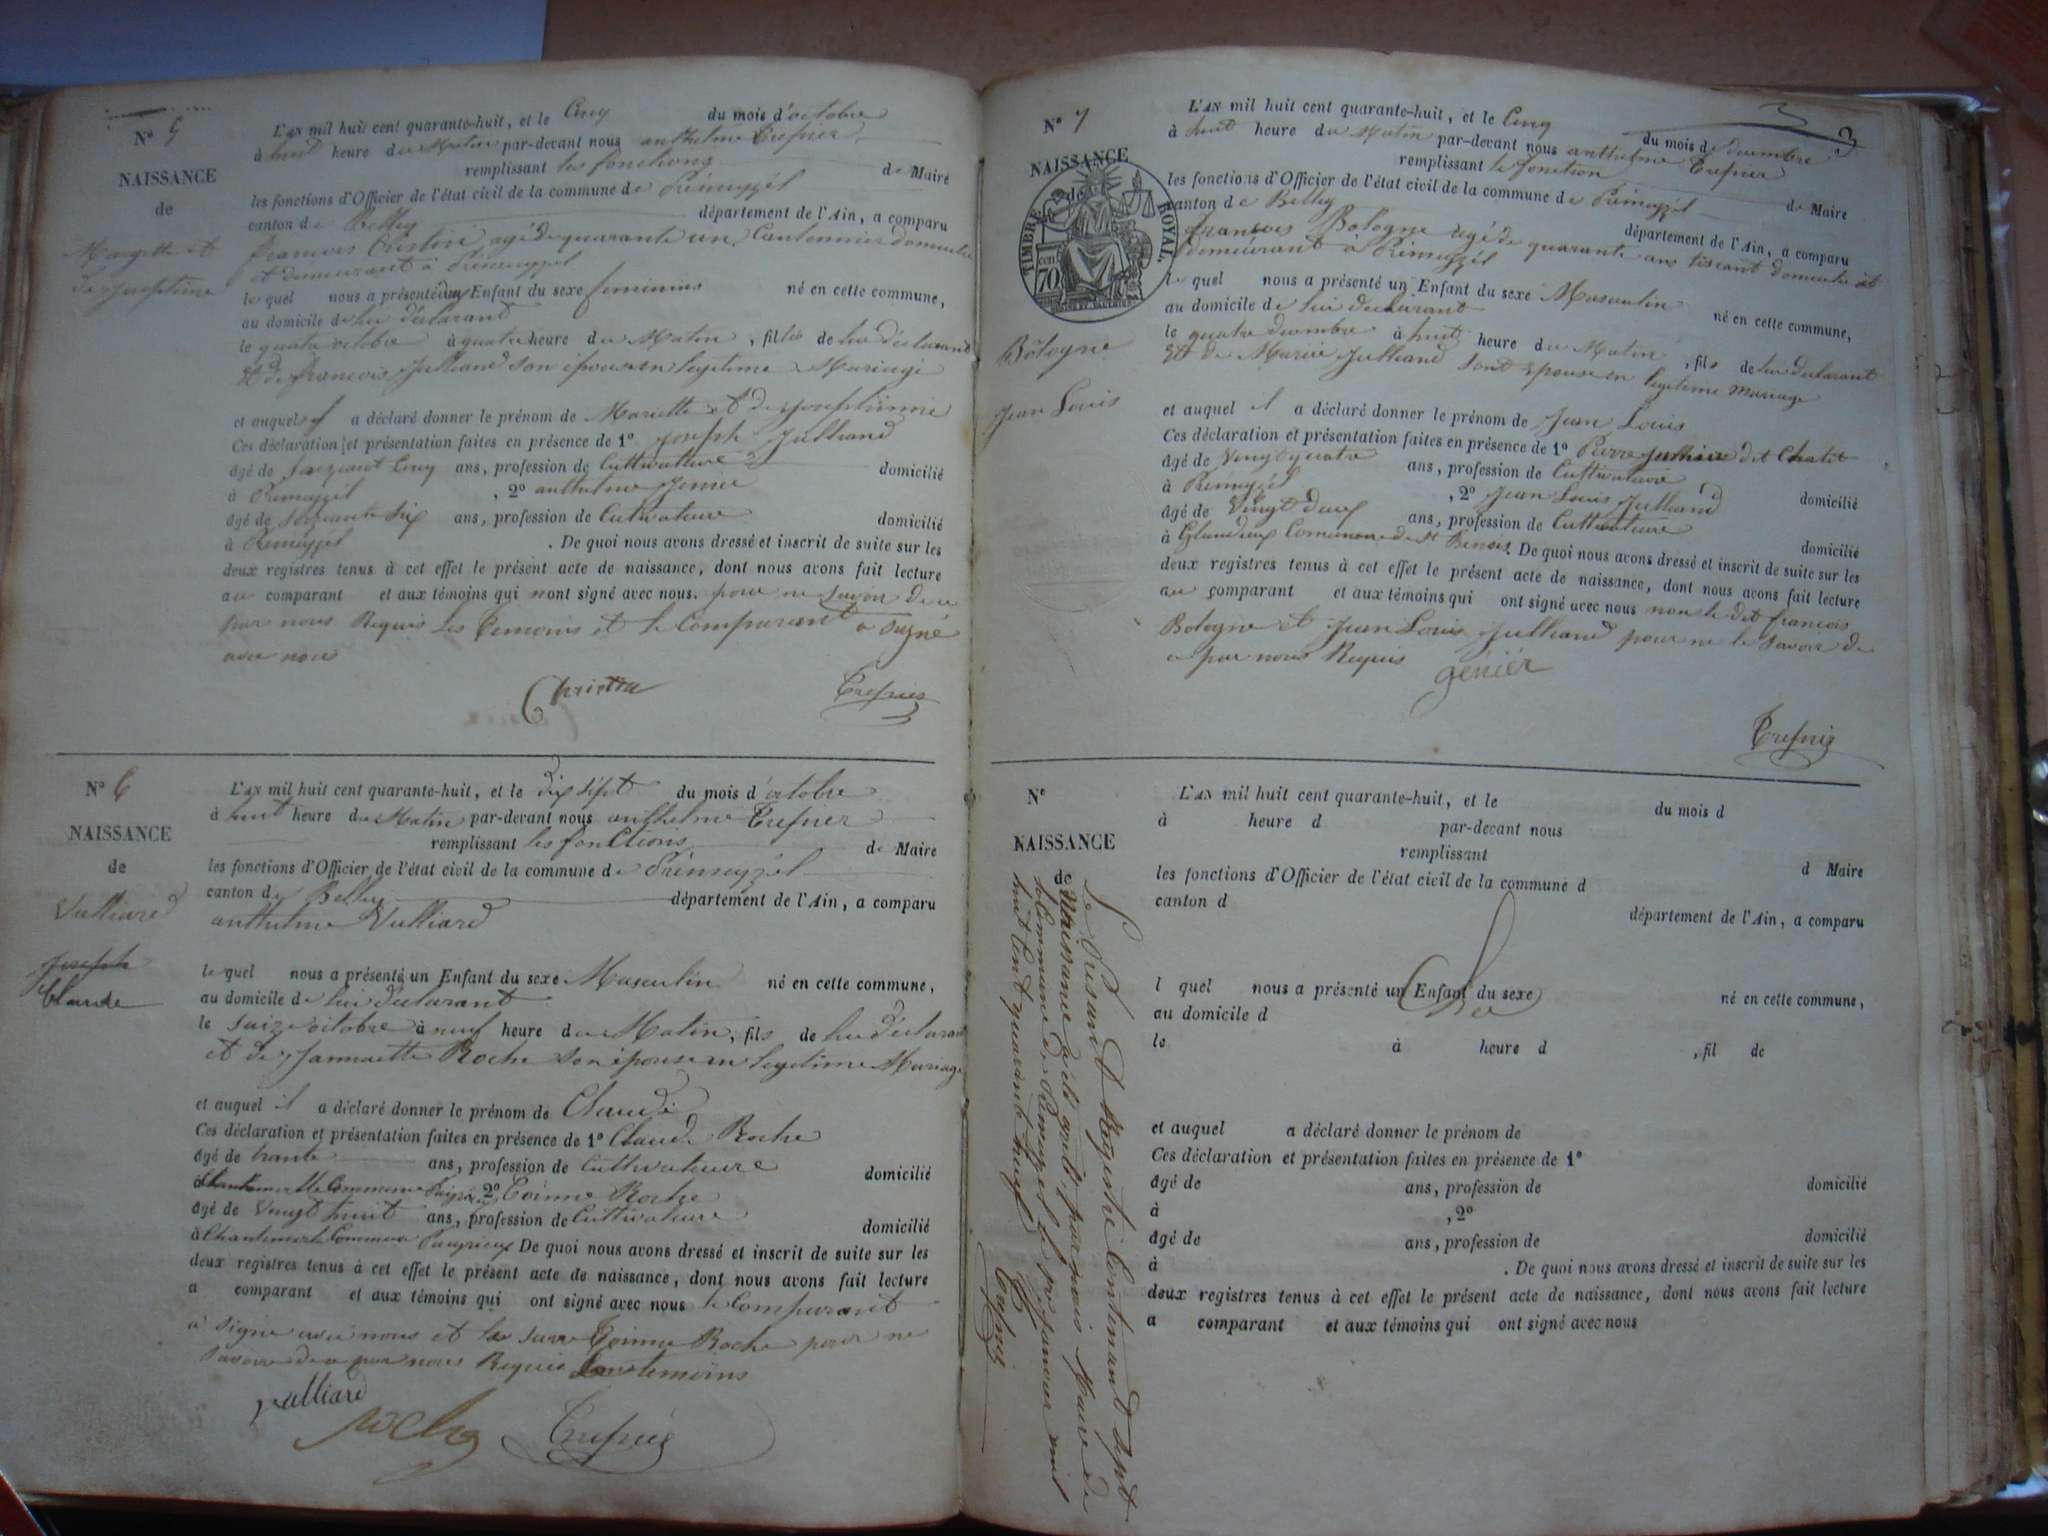 N° 5
NAISSANCE
de
Mariette et
de Joseptine
L'AN mil huit cent quarante-huit, et le Cinq du mois d'octobre
à huit heure du Matin par-devant nous anthelme Trefner
remplissant les fonctions de Maire
les fonctions d'Officier de l'état civil de la commune de Prémeyzel
canton de Belley département de l'Ain, a comparu
francois agé de quarante un Cantonnier domicilie
et demeurant à Prémeyzel
le quel nous a présenté un Enfant du sexe feminins né en cette commune,
au domicile de lui déclarant
le quatre octobre à quatre heure du Matin, filles de lui déclarant
Et de francois Julliand son épouse en legitime Mariage
et auquel il a déclaré donner le prénom de Mariette et de josephinne
Ces déclaration et présentation faites en présence de 1° joseph Julliand
âgé de soixante Cinq ans, profession de Cultivateure domicilié
à Premeyzel, 2° anthelme
âgé de soixante six ans, profession de Cultivateure domicilié
à Premeyzel. De quoi nous avons dressé et inscrit de suite sur les
deux registres tenus à cet effet le présent acte de naissance, dont nous avons fait lecture
au comparant et aux témoins qui nont signé avec nous. pour ne savoir de ce
par nous Requis les Temoins et le Comparant a signé
avec nous
Trefnier
N° 6
NAISSANCE
de
Vulliard
Joseph
Claude
L'AN mil huit cent quarante-huit, et le dix sept du mois d'octobre
à huit heure du Matin par-devant nous anthelme Trefner
remplissant les fonctions de Maire
les fonctions d'Officier de l'état civil de la commune de Prémeyzel
canton de Belley département de l'Ain, a comparu
anthelme Vulliard
le quel nous a présenté un Enfant du sexe Masculin né en cette commune,
au domicile de lui déclarant
le saize octobre à neuf heure du Matin, fils de lui déclarant
et de Jannaette Roche son épouse en legitime Mariage
et auquel il a déclaré donner le prénom de Claude
Ces déclaration et présentation faites en présence de 1° Claude Roche
âgé de trante ans, profession de Cultivateure domicilié
à Chantemerle Commune 2° Roche
âgé de vingt huit ans, profession de Cultivateure domicilié
à Chantemerle Commune Peyrieux De quoi nous avons dressé et inscrit de suite sur les
deux registres tenus à cet effet le présent acte de naissance, dont nous avons fait lecture
a comparant et aux témoins qui ont signé avec nous le Comparant
a signé avec nous et Roche pour ne
savoir de ce par nous Requis temoins
vulliard
roche
Trefnier
3
N° 7
NAISSANCE
de
TIMBRE ROYAL.
70 cen
Bologne
Jean Louis
L'AN mil huit cent quarante-huit, et le Cinq du mois de decembre
à huit heure du Matin par-devant nous anthelme Trefner
remplissant le fonction de Maire
les fonctions d'Officier de l'état civil de la commune de Prémeyzel
canton de Belley département de l'Ain, a comparu
francois Bologne agé de quarante ans tisserant domicilie et
demeurant à Prémeyzel
le quel nous a présenté un Enfant du sexe Masculin né en cette commune,
au domicile de lui declarant
le quatre decembre à huit heure du Matin, fils de lui declarant
Et de Marie Julliand sont épouse en legitime mariage
et auquel il a déclaré donner le prénom de Jean Louis
Ces déclaration et présentation faites en présence de 1° Pierre dit
âgé de vingt quatre ans, profession de Cultivateure domicilié
à Premeyzel, 2° Jean Louis Julliand
âgé de vingt deux ans, profession de Cultivateure domicilié
à Glandieux Commune de St Benois. De quoi nous avons dressé et inscrit de suite sur les
deux registres tenus à cet effet le présent acte de naissance, dont nous avons fait lecture
au comparant et aux témoins qui ont signé avec nous non le dit francois
Bologne et Jean Louis Julliand pour ne le savoir de
ce par nous Requis
génier
Trefnier
N°
NAISSANCE
de
L'AN mil huit cent quarante-huit, et le du mois d
à heure d par-devant nous
remplissant d Maire
les fonctions d'Officier de l'état civil de la commune d
canton d département de l'Ain, a comparu
l quel nous a présenté un Enfant du sexe né en cette commune,
au domicile d
le à heure d, fil de
et auquel a déclaré donner le prénom de
Ces déclaration et présentation faites en présence de 1°
âgé de ans, profession de domicilié
à, 2°
âgé de ans, profession de domicilié
à. De quoi nous avons dressé et inscrit de suite sur les
deux registres tenus à cet effet le présent acte de naissance, dont nous avons fait lecture
a comparant et aux témoins qui ont signé avec nous
Le Présant Registre Contenant sept
Naissance a été arêté par nous Maire de
la Commune de Prémeyzel le premier janvier mil
huit Cent quarant neuf
Trefnier